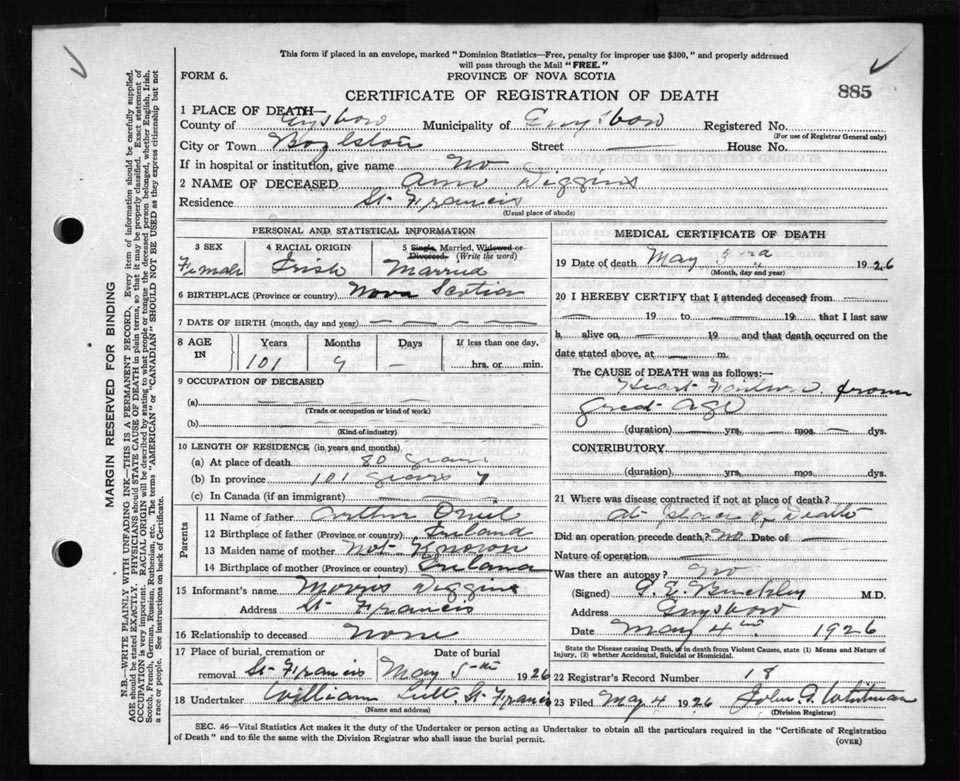 This form if placed in an envelope, marked "Dominion Statistics—Free, penalty for improper use $300," and properly addressed
will pass through the Mail "FREE."
FORM 6.
PROVINCE OF NOVA SCOTIA
CERTIFICATE OF REGISTRATION OF DEATH
885
1 PLACE OF DEATH—
County of Guysboro Municipality of Guysboro Registered No.
(For use of Registrar General only)
City or Town Boylston Street — House No.
If in hospital or institution, give name No
2 NAME OF DECEASED Ann Diggins
Residence St. Francis
(Usual place of abode)
PERSONAL AND STATISTICAL INFORMATION
3 SEX 4 RACIAL ORIGIN 5 Single, Married, Widowed or
Divorced. (Write the word)
Female Irish Married
6 BIRTHPLACE (Province or country) Nova Scotia
7 DATE OF BIRTH (month, day and year) — — —
8 AGE IN Years Months Days If less than one day,
101 9 — hrs. or min.
9 OCCUPATION OF DECEASED
(a) — — — —
(Trade or occupation or kind of work)
(b) — — — —
(Kind of industry)
10 LENGTH OF RESIDENCE (in years and months)
(a) At place of death 80 years
(b) In province 101 years 9
(c) In Canada (if an immigrant) — — —
Parents
11 Name of father Arthur Oneil
12 Birthplace of father (Province or country) Ireland
13 Maiden name of mother Not Known
14 Birthplace of mother (Province or country) Ireland
15 Informant's name Morris Diggins
Address St. Francis
16 Relationship to deceased None
17 Place of burial, cremation or removal Date of burial
St. Francis May 5th 1926
18 Undertaker William St. Francis
(Name and address)
MEDICAL CERTIFICATE OF DEATH
19 Date of death May 3rd 1926
(Month, day and year)
20 I HEREBY CERTIFY that I attended deceased from —
— 19 to — 19 that I last saw
h alive on — 19 and that death occurred on the
date stated above, at — m.
The CAUSE of DEATH was as follows:—
Heart Failure from
great age
(duration) — yrs. — mos. — dys.
CONTRIBUTORY
(duration) yrs. mos. dys.
21 Where was disease contracted if not at place of death?
At place of Death
Did an operation precede death? No Date of —
Nature of operation —
Was there an autopsy? No
(Signed) G. E. Buckley M.D.
Address Guysboro
Date May 4 1926
State the Disease causing Death, or in death from Violent Causes, state (1) Means and Nature of
Injury, (2) whether Accidental, Suicidal or Homicidal.
22 Registrar's Record Number 18
23 Filed May 4 1926 John A. Whitman
(Division Registrar)
SEC. 46—Vital Statistics Act makes it the duty of the Undertaker or person acting as Undertaker to obtain all the particulars required in the "Certificate of Registration
of Death" and to file the same with the Division Registrar who shall issue the burial permit.
(OVER)
MARGIN RESERVED FOR BINDING
N.B.—WRITE PLAINLY WITH UNFADING INK—THIS IS A PERMANENT RECORD. Every item of information should be carefully supplied.
AGE should be stated EXACTLY. PHYSICIANS should STATE CAUSE OF DEATH in plain terms, so that it may be properly classified. Exact statement of
OCCUPATION is very important. RACIAL ORIGIN will be described by stating to what people or tongue the deceased person belonged, whether English, Irish,
Scotch, French, German, Russian, Ruthenian, etc. The terms "AMERICAN" or "CANADIAN" SHOULD NOT BE USED as they express citizenship but not
a race or people. See instructions on back of Certificate.